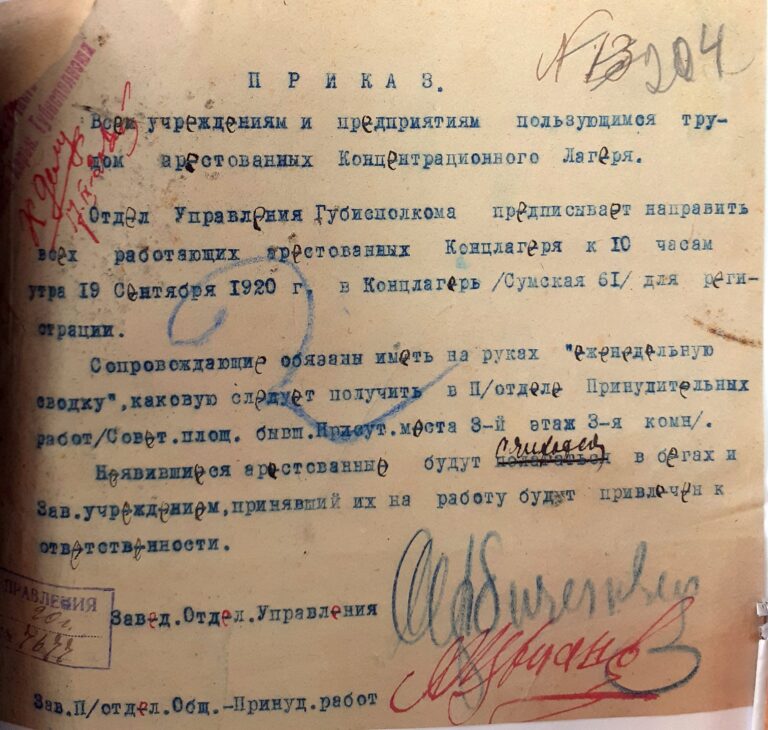 № 13 204
ПРИКАЗ.
Всем учреждениям и предприятиям пользующимся тру-
дом арестованных Концентрационного Лагеря.
К делу
Отдел Управления Губисполкома предписывает направить
всех работающих арестованных Концлагеря к 10 часам
утра 19 Сентября 1920 г. в Концлагерь /Сумская 61/ для реги-
страции.
Сопровождающие обязаны иметь на руках "еженедельную
сводку",каковую следует получить в П/отделе Принудительных
работ/Совет.площ. бывш.Присут.места 3-й этаж 3-я комн/.
Неявившиеся арестованные будут считаться в бегах и
Зав.учреждением,принявший их на работу будут привлечен к
ответственности.
ПРАВЛЕНИЯ
20 г.
7677
Завед.Отдел.Управления
Зав.П/отдел.Общ.-Принуд.работ